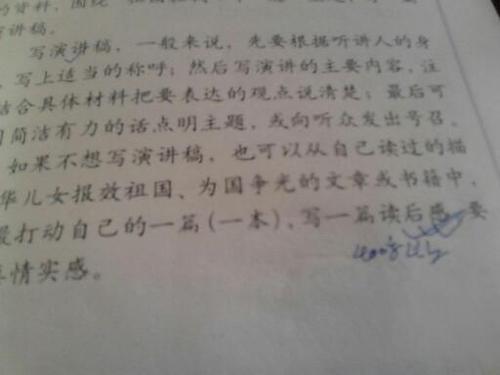 的资料，围绕
讲稿。
写演讲稿，一般来说，先要根据听讲人的身
，写上适当的称呼；然后写演讲的主要内容，注
结合具体材料把要表达的观点说清楚；最后可
用简洁有力的话点明主题，或向听众发出号召。
如果不想写演讲稿，也可以从自己读过的描
华儿女报效祖国、为国争光的文章或书籍中，
最打动自己的一篇(一本)，写一篇读后感，要
真情实感。
400字